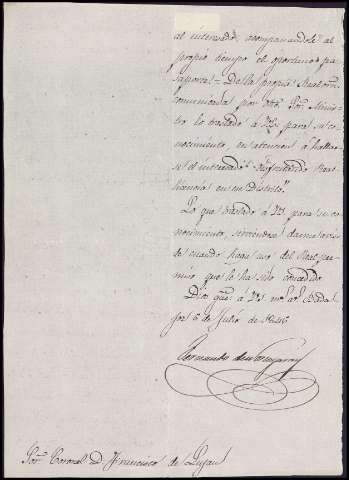 al interesado acompañandole al
propio tiempo el oportuno pa-
saporte = De la propia Real orn
comunicada por dho Sor Minis-
tro lo traslado á V.E. para su co-
nocimiento, en atencion á hallar-
se el interesado disfrutando Real
licencia en ese distrito."
Lo que traslado á VS para su co-
nocimiento, sirviendose darme avi-
so cuando haga uso del Real per-
miso que le ha sido concedido
Dios gue. á VS ms. as. Bada-
joz 6 de Julio de 1846
Fernando de
Sor. Coronel D. Francisco de Lujan